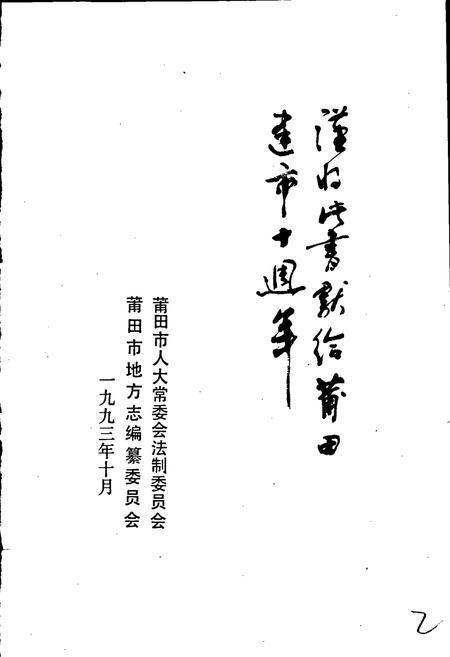 谨将此書献给莆田
建市十週年
莆田市人大常委会法制委员会
莆田市地方志编纂委员会
一九九三年十月